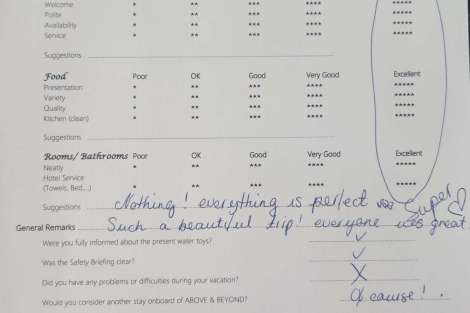 Welcome * ** *** **** *****
Polite * ** *** **** *****
Availability * ** *** **** *****
Service * ** *** **** *****
Suggestions
Food Poor OK Good Very Good Excellent
Presentation * ** *** **** *****
Variety * ** *** **** *****
Quality * ** *** **** *****
Kitchen (clean) * ** *** **** *****
Suggestions
Rooms/ Bathrooms Poor OK Good Very Good Excellent
Neatly * ** *** **** *****
Hotel Service
(Towels, Bed...) * ** *** **** *****
Suggestions Nothing! everything is perfect Super
General Remarks Such a beautiful trip! everyone was great
Were you fully informed about the present water toys?
Was the Safety Briefing clear?
Did you have any problems or difficulties during your vacation?
Would you consider another stay onboard of ABOVE & BEYOND? Of cause!